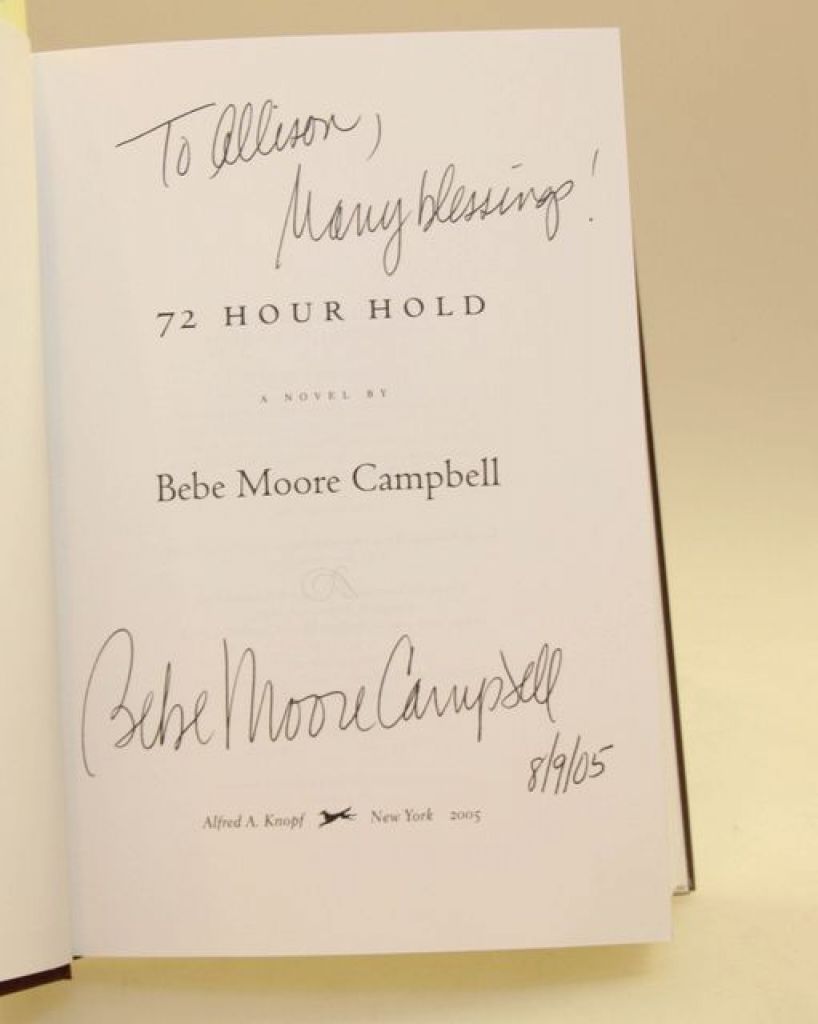 To Allison,
Many blessings!
72 HOUR HOLD
A NOVEL BY
Bebe Moore Campbell
Bebe Moore Campbell
8/9/05
Alfred A. Knopf New York 2005